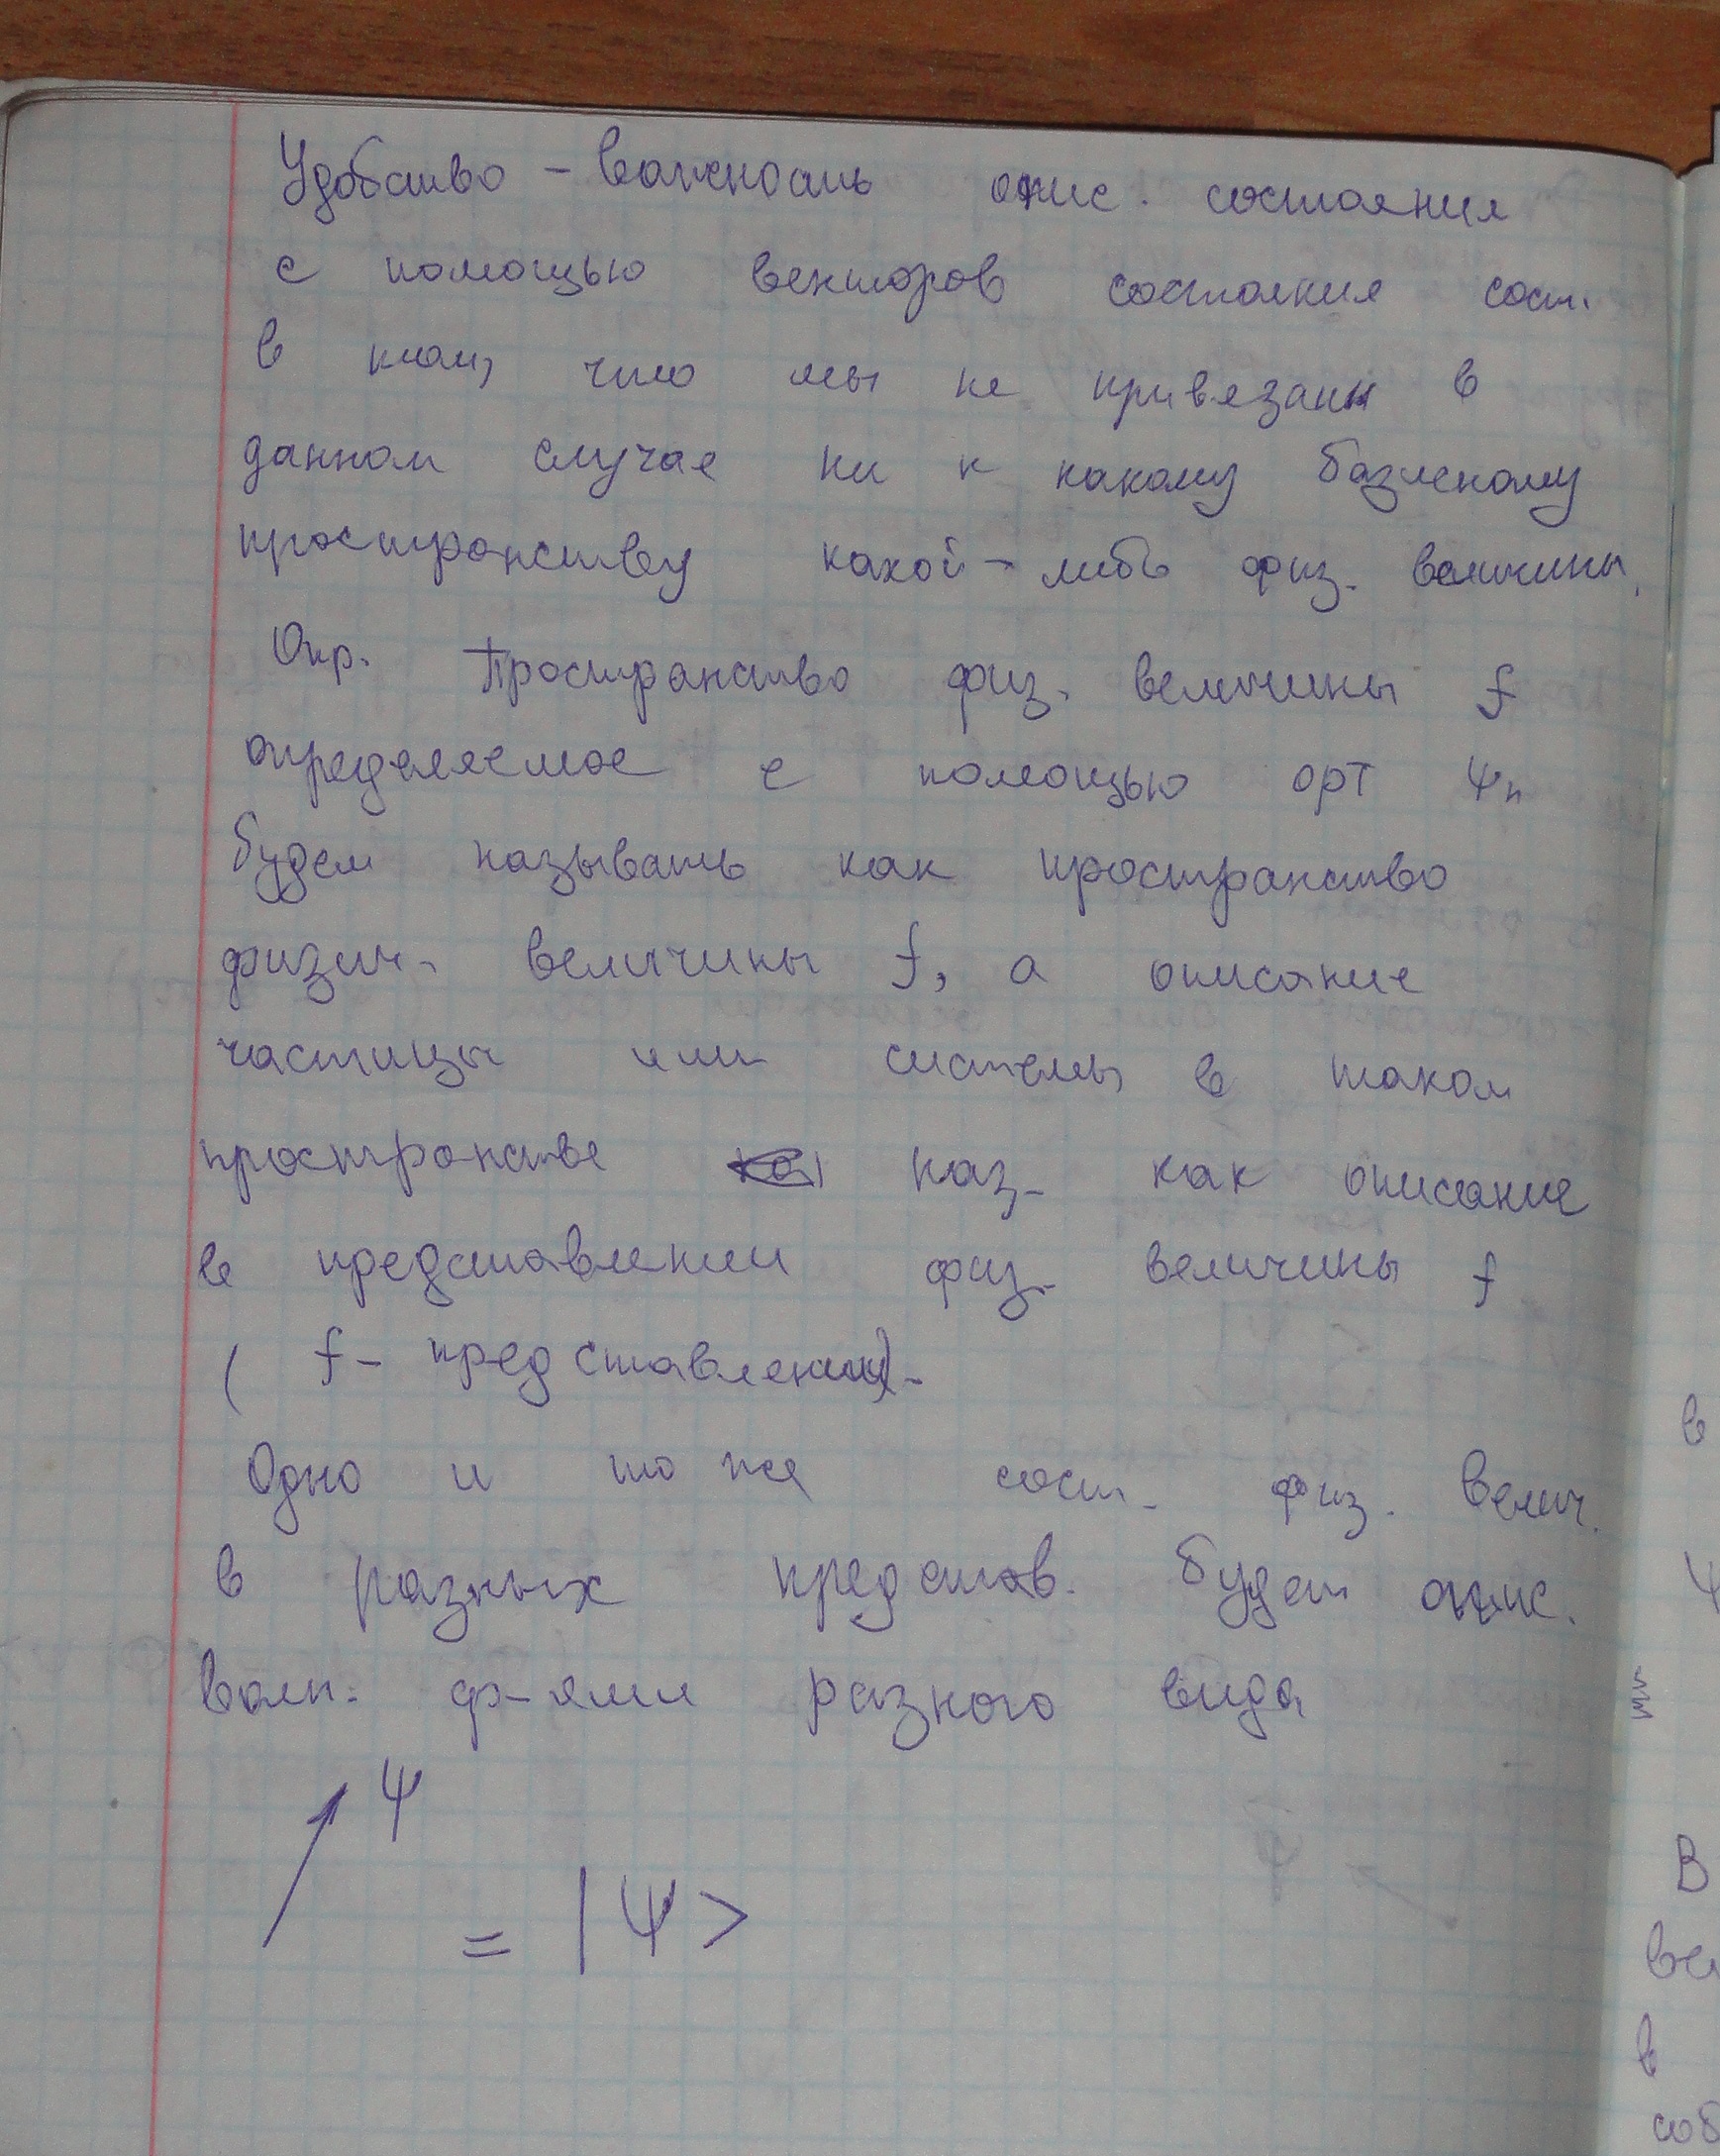 Удобство - важность опис. состояния
с помощью векторов состояния сост.
в том, что мы не привязаны в
данном случае ни к какому базисному
пространству какой-либо физ. величины.
Опр. Пространство физ. величины f
определяемое с помощью орт ψn
будем называть как пространство
физич. величины f, а описание
частицы или системы в таком
пространстве наз. как описание
в представлении физ. величины f
( f- представлении).
Одно и то же сост. физ. велич.
в разных представ. будет опис.
волн. ф-ями разного вида
Ψ
= |Ψ>
в
Ψ
В
ве
в
соб